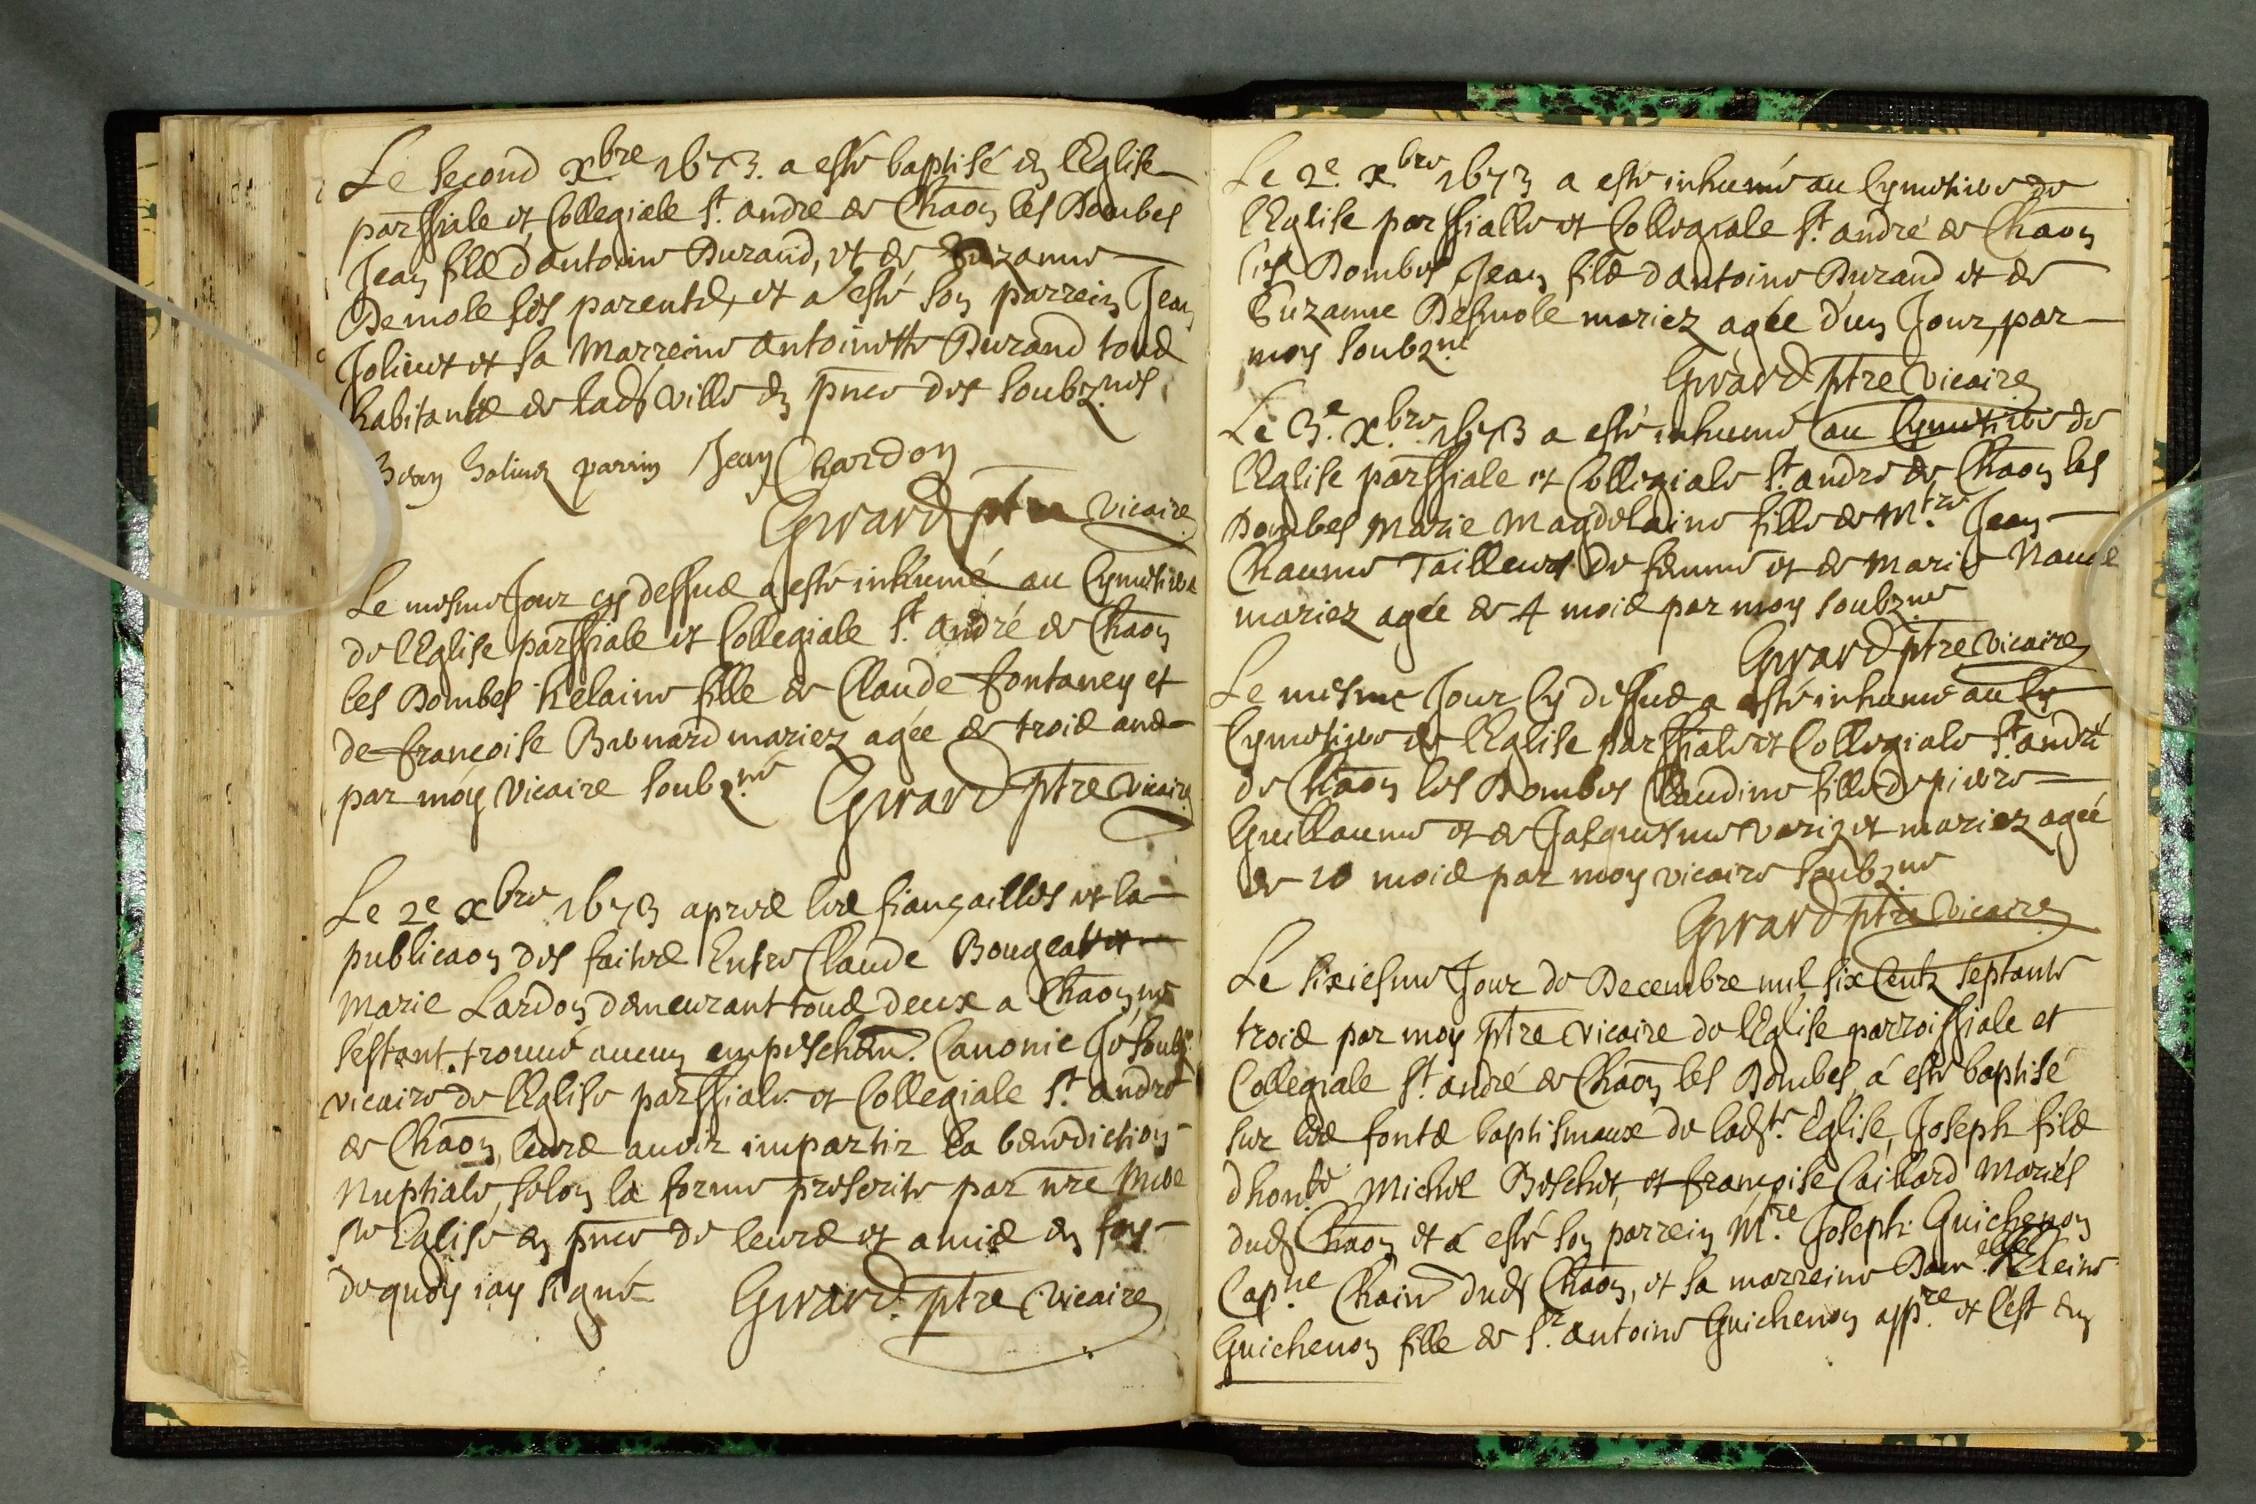 Le second xbre 1673. a esté baptisé en l'Eglise
parssiale et Collegiale St. andré de Chaon les Dombes
Jean fils d'antoine Durand, et de Suzanne
Demole ses parents, et a esté son parrein Jean
Joliuet et sa Marreine antoinette Durand tous
habitants de lade ville en pnce des soubznés
parrin Jean Chardon
Girard ptre vicaire
Le mesme Jour cy dessus a esté inhumé au Cymetiere
de l'Eglise parssiale et Collegiale St. andré de Chaon
les Dombes helaine fille de Claude fontaney et
de françoise Bernard mariez agée de trois ans
par moy Vicaire soubzné Girard ptre vicaire
Le 2e xbre 1673 apres les fiançailles et la
publicaon des faites Entre Claude Bougeat et
Marie Lardon demeurant tous deux a Chaon, ne
sestant trouué aucun empeschem. Canonic Je soubz.
vicaire de l'Eglise parssiale et Collegiale St. andré
de Chaon, leurs auoir impartir la benediction
Nuptiale, selon la forme prescrite par nre Mere
ste Eglise en pnce de leurs et amis en foy
de quoy iay signé Girard ptre vicaire
Le 2e. xbre 1673 a esté inhumé au Cymetiere de
l'Eglise parssialle et Collegiale St. andré de Chaon
les Dombes Jean fils d'antoine Durand et de
Suzanne Desmole mariez agée d'un Jour, par
moy soubzné
Girard ptre vicaire
Le 3e. xbre 1673 a esté inhumé au Cymetiere de
l'Eglise parssiale et Collegiale St. andré de Chaon les
Dombes Marie Magdelaine fille de Mtre Jean
Chaume Tailleur de femme et de Marie Naude
mariez agée de 4 mois par moy soubzné
Girard ptre vicaire
Le mesme Jour Cy dessus a esté inhumé au Cy
Cymetiere de l'Eglise parssiale et Collegiale St. andré
de Chaon les Dombes Claudine fille de pierre
Guillaume et de Jaquesme variz et mariez agée
de 10 mois par moy vicaire soubzné
Girard ptre vicaire
Le sixiesme Jour de Decembre mil six Centz septante
trois par moy ptre vicaire de l'Eglise parroissiale et
Collegiale St. andré de Chaon les Dombes, a esté baptisé
sur les fonts baptismaux de ladte. Eglise, Joseph fils
dhonble Michel Beschet, et françoise Caillard Mariés
dud Chaon et a esté son parrein Mre. Joseph Guichenon
Capne Chain dud Chaon, et sa marreine Damelle heleine
Guichenon fille de Sr. antoine Guichenon appre. et C'est en